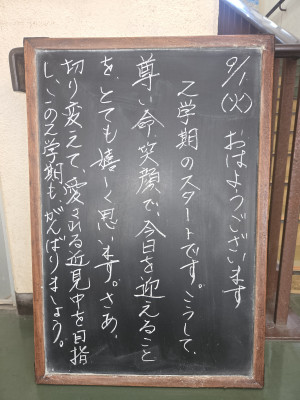 9/1(火) おはようございます
2学期のスタートです。こうして、
尊い命、笑顔で、今日を迎えること
を、とても嬉しく思います。さあ、
切り変えて、愛される近見中を目指
し、この2学期も、がんばりましょう。